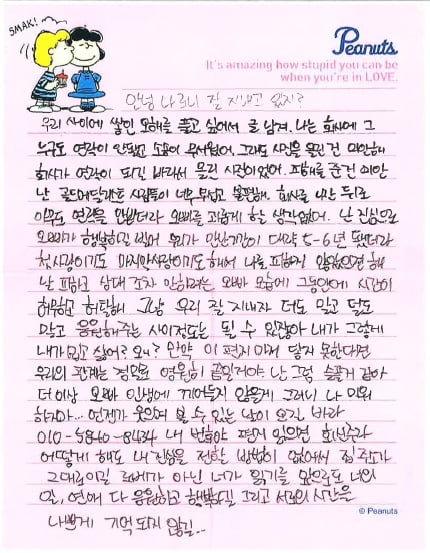 SMAK!
Peanuts
It's amazing how stupid you can be
when you're in LOVE.
안녕 나르니 잘 지내고 있지?
우리 사이에 쌓인 오해를 풀고 싶어서 글 남겨. 나는 회사에 그
누구도 연락이 안됐고 소송이 무서웠어. 그래도 사진을 올린 건 미안해
회사가 연락이 되길 바래서 올린 사진이었어. 피해를 준건 미안
난 골드메달리스트 사람들이 너무 무섭고 불편해. 회사를 나간 뒤로
아무도 연락을 안받더라 오빠를 괴롭게 할 생각없어. 난 진심으로
오빠가 행복하길 빌어 우리가 만난기간이 대략 5-6년 됐더라
첫사랑이기도 마지막사랑이기도 해서 나를 피하지 않았으면 해
난 피하고 상대 조차 안하려는 오빠 모습에 그동안에 시간이
허무하고 허탈해 그냥 우리 잘 지내자 더도 말고 덜도
말고 응원해주는 사이정도는 될 수 있잖아 내가 그렇게
내가 밉고 싫어? 왜? 만약 이 편지마저 닿지 못한다면
우리의 관계는 정말로 영원히 끝일거야 난 그럼 슬플거 같아
더이상 오빠 인생에 끼어들지 않을게 그러니 나 미워
하지마... 언젠가 웃으며 볼 수 있는 날이 오길 바라
010-5840-8434 내 번호야 편지 읽으면 회신주라
어떻게 해도 내 진심을 전할 방법이 없어서 집주소가
그대로이길 바래 아닌 너가 읽기를 앞으로도 너의
일, 연애 다 응원하고 행복하길 그리고 서로의 시간을
나쁘게 기억 되지 않길...
© Peanuts